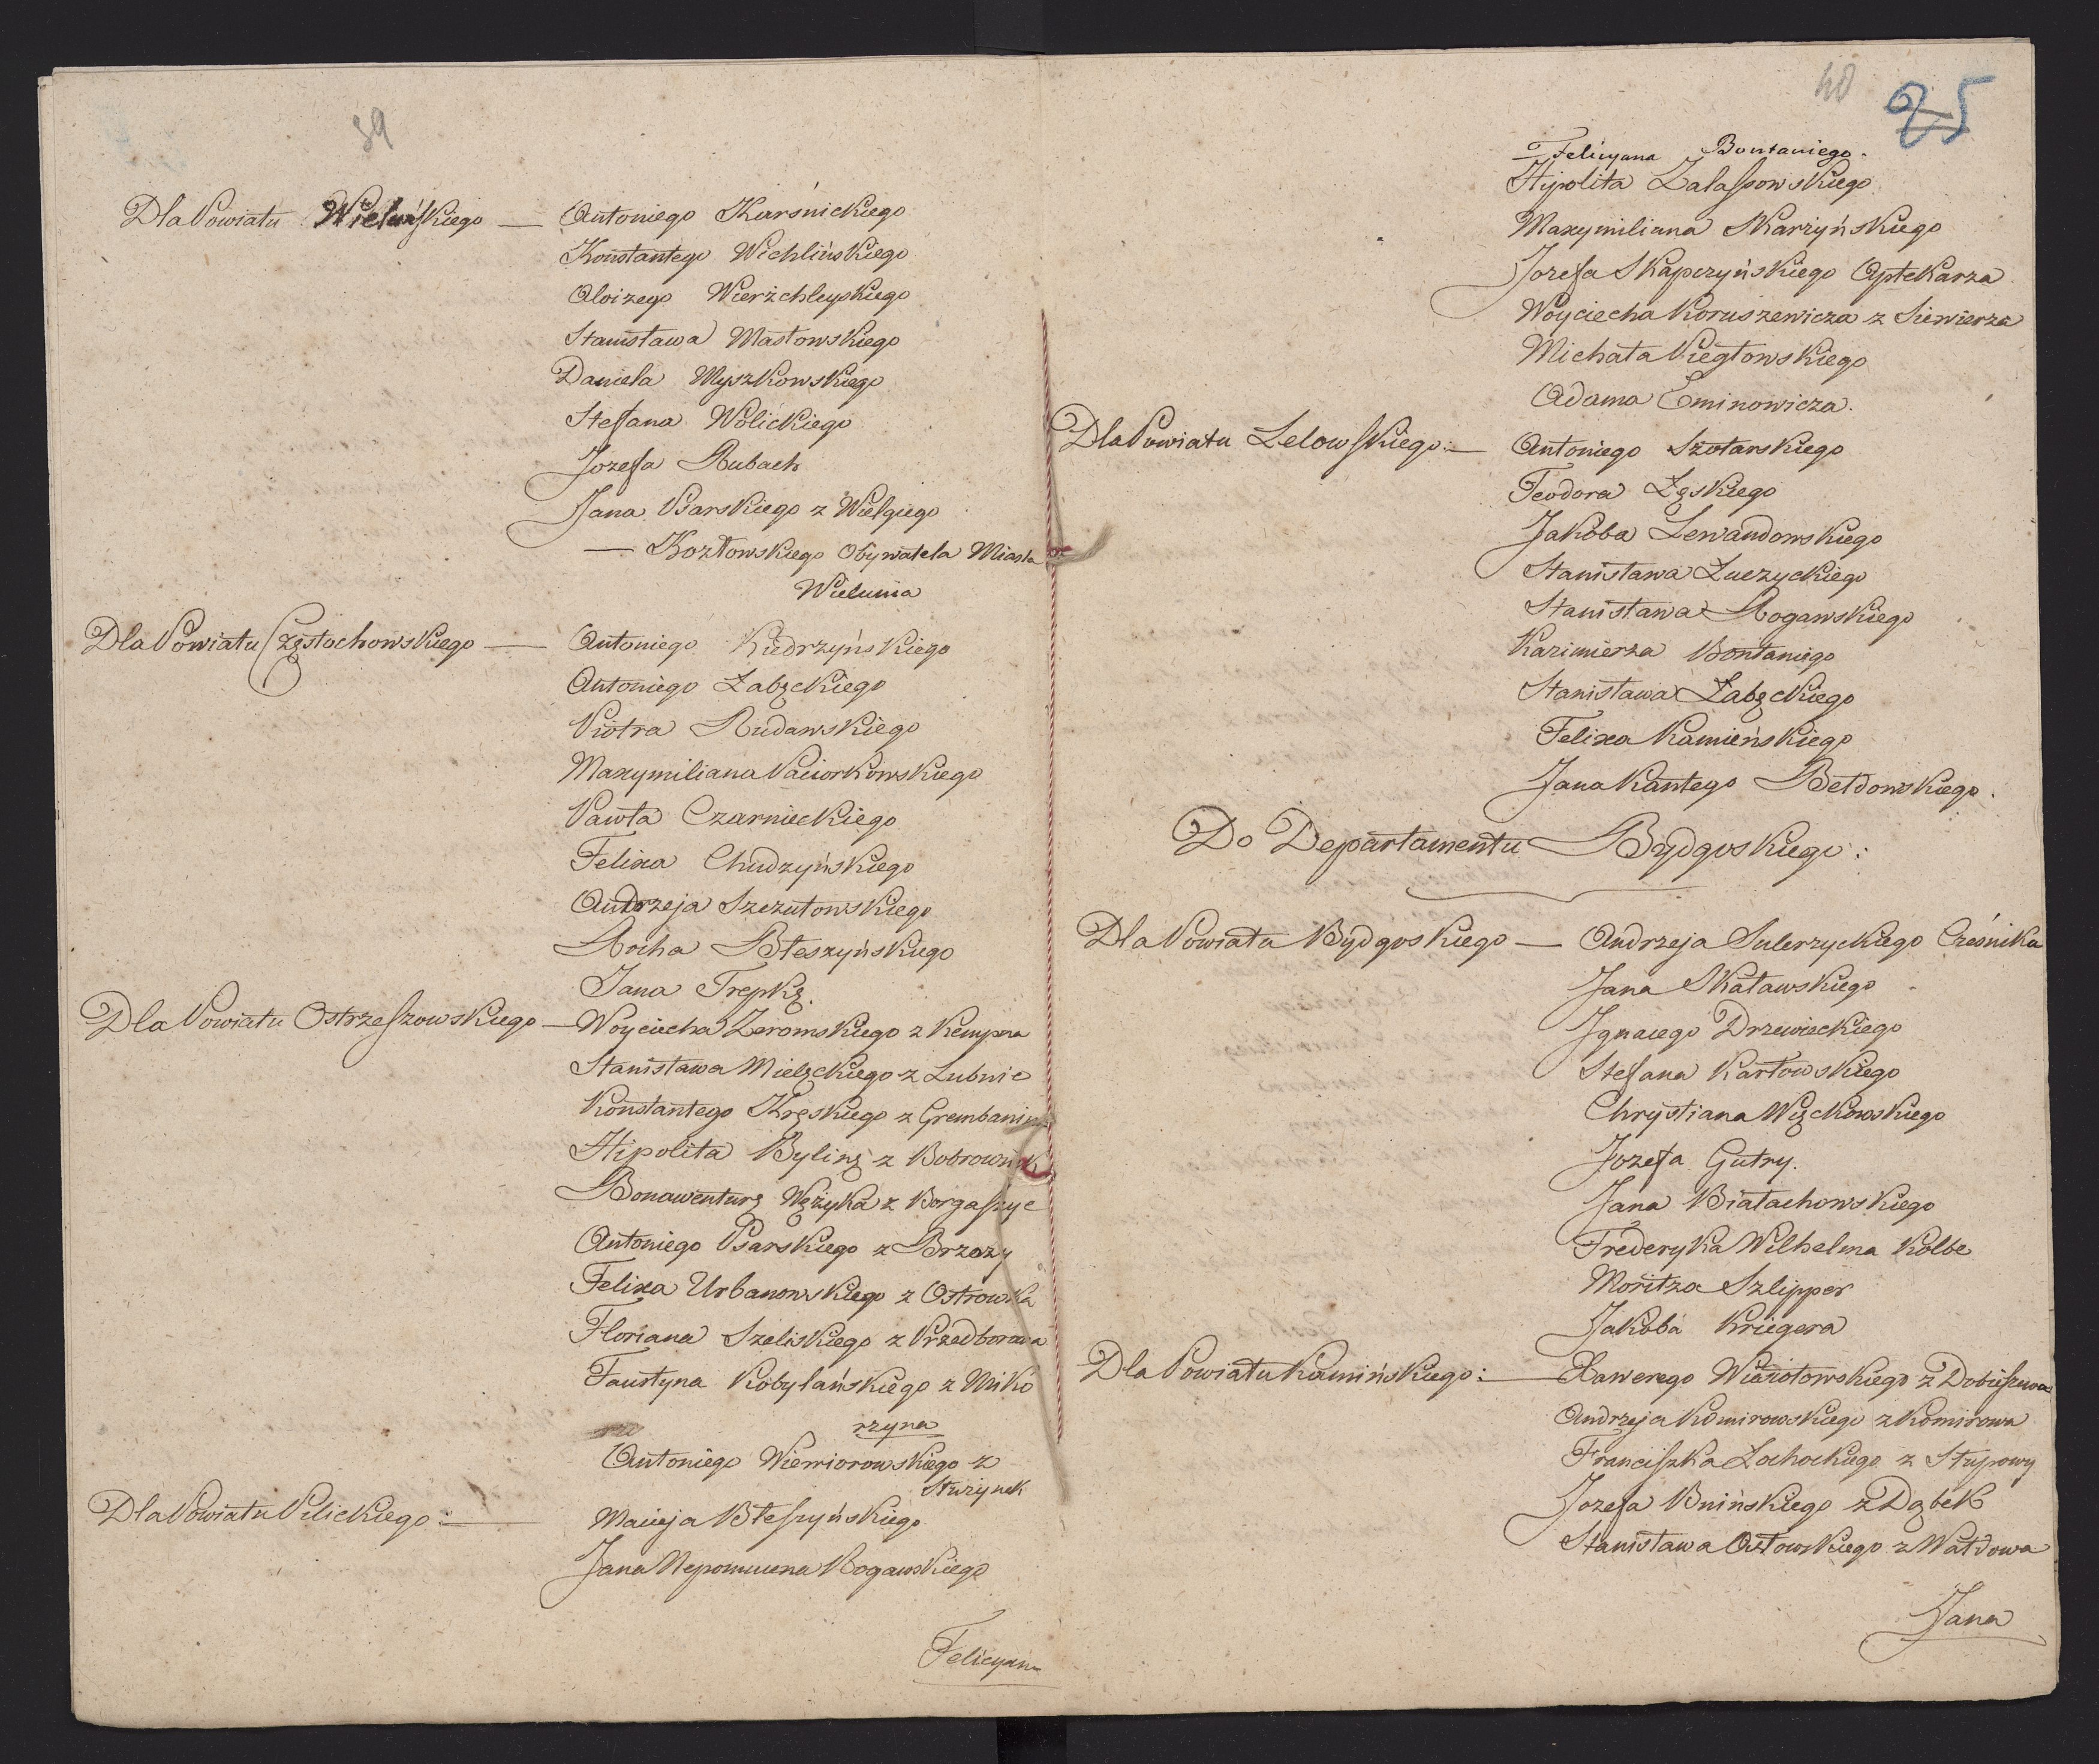 39
Dla Powiatu Wieluńskiego — Antoniego Karśnickiego
Konstantego Wichlińskiego
Aloizego Wierzchleyskiego
Stanisława Masłowskiego
Daniela Myszkowskiego
Stefana Wolickiego
Jozefa Rubach
Jana Psarskiego z Wielgiego
— Kozłowskiego Obywatela Miasta
Wielunia
Dla Powiatu Częstochowskiego — Antoniego Kiedrzyńskiego
Antoniego Łabęckiego
Piotra Rudawskiego
Maxymiliana Paciorkowskiego
Pawła Czarnieckiego
Felixa Chudzyńskiego
Andrzeja Szczutowskiego
Rocha Błeszyńskiego
Jana Trepkę.
Dla Powiatu Ostrzeszowskiego — Woyciecha Zeromskiego z Kempna
Stanisława Mielęckiego z Lubnic
Konstantego Kręskiego z Grembanina
Hipolita Bylinę z Bobrownik
Bonawenturę Wężyka z Borgaszyc
Antoniego Psarskiego z Brzozy
Felixa Urbanowskiego z Ostrowka
Floriana Szeliskiego z Przedborowa
Faustyna Kobylańskiego z Miko
rzyna
Antoniego Wiewiorowskiego z
Struzynek
Dla Powiatu Pilickiego: — Macieja Błeszyńskiego
Jana Nepomucena Bogawskiego
Felicyana
40 25
Felicyana Bontaniego.
Hipolita Załaszowskiego
Maxymiliana Skarzyńskiego
Jozefa Skapczyńskiego Aptekarza
Woyciecha Koruszewicza z Siewierza
Michała Piegłowskiego
Adama Eminowicza.
Dla Powiatu Lelowskiego: — Antoniego Szołarskiego
Teodora Łęskiego
Jakoba Lewandowskiego
Stanisława Łuczyckiego
Stanisława Rogawskiego
Kazimierza Bontaniego
Stanisława Łabęckiego
Felixa Kamieńskiego
Jana Kantego Bełdowskiego.
Do Departamentu Bydgoskiego:
Dla Powiatu Bydgoskiego — Andrzeja Sulerzyckiego Cześnika
Jana Skaławskiego
Jgnacego Drzewieckiego
Stefana Karłowskiego
Chrystiana Więckowskiego
Jozefa Gutry.
Jana Białachowskiego
Frederyka Wilhelma Kolbe
Moritza Szlipper
Jakoba Kriegera
Dla Powiatu Kamińskiego: — Xawerego Wiesiołowskiego z Dobieszewa
Andrzeja Komirowskiego z Komirowa
Franciszka Łochockiego z Stupowy
Jozefa Bnińskiego z Dąbek
Stanisława Ostowskiego z Wałdowa
Jana